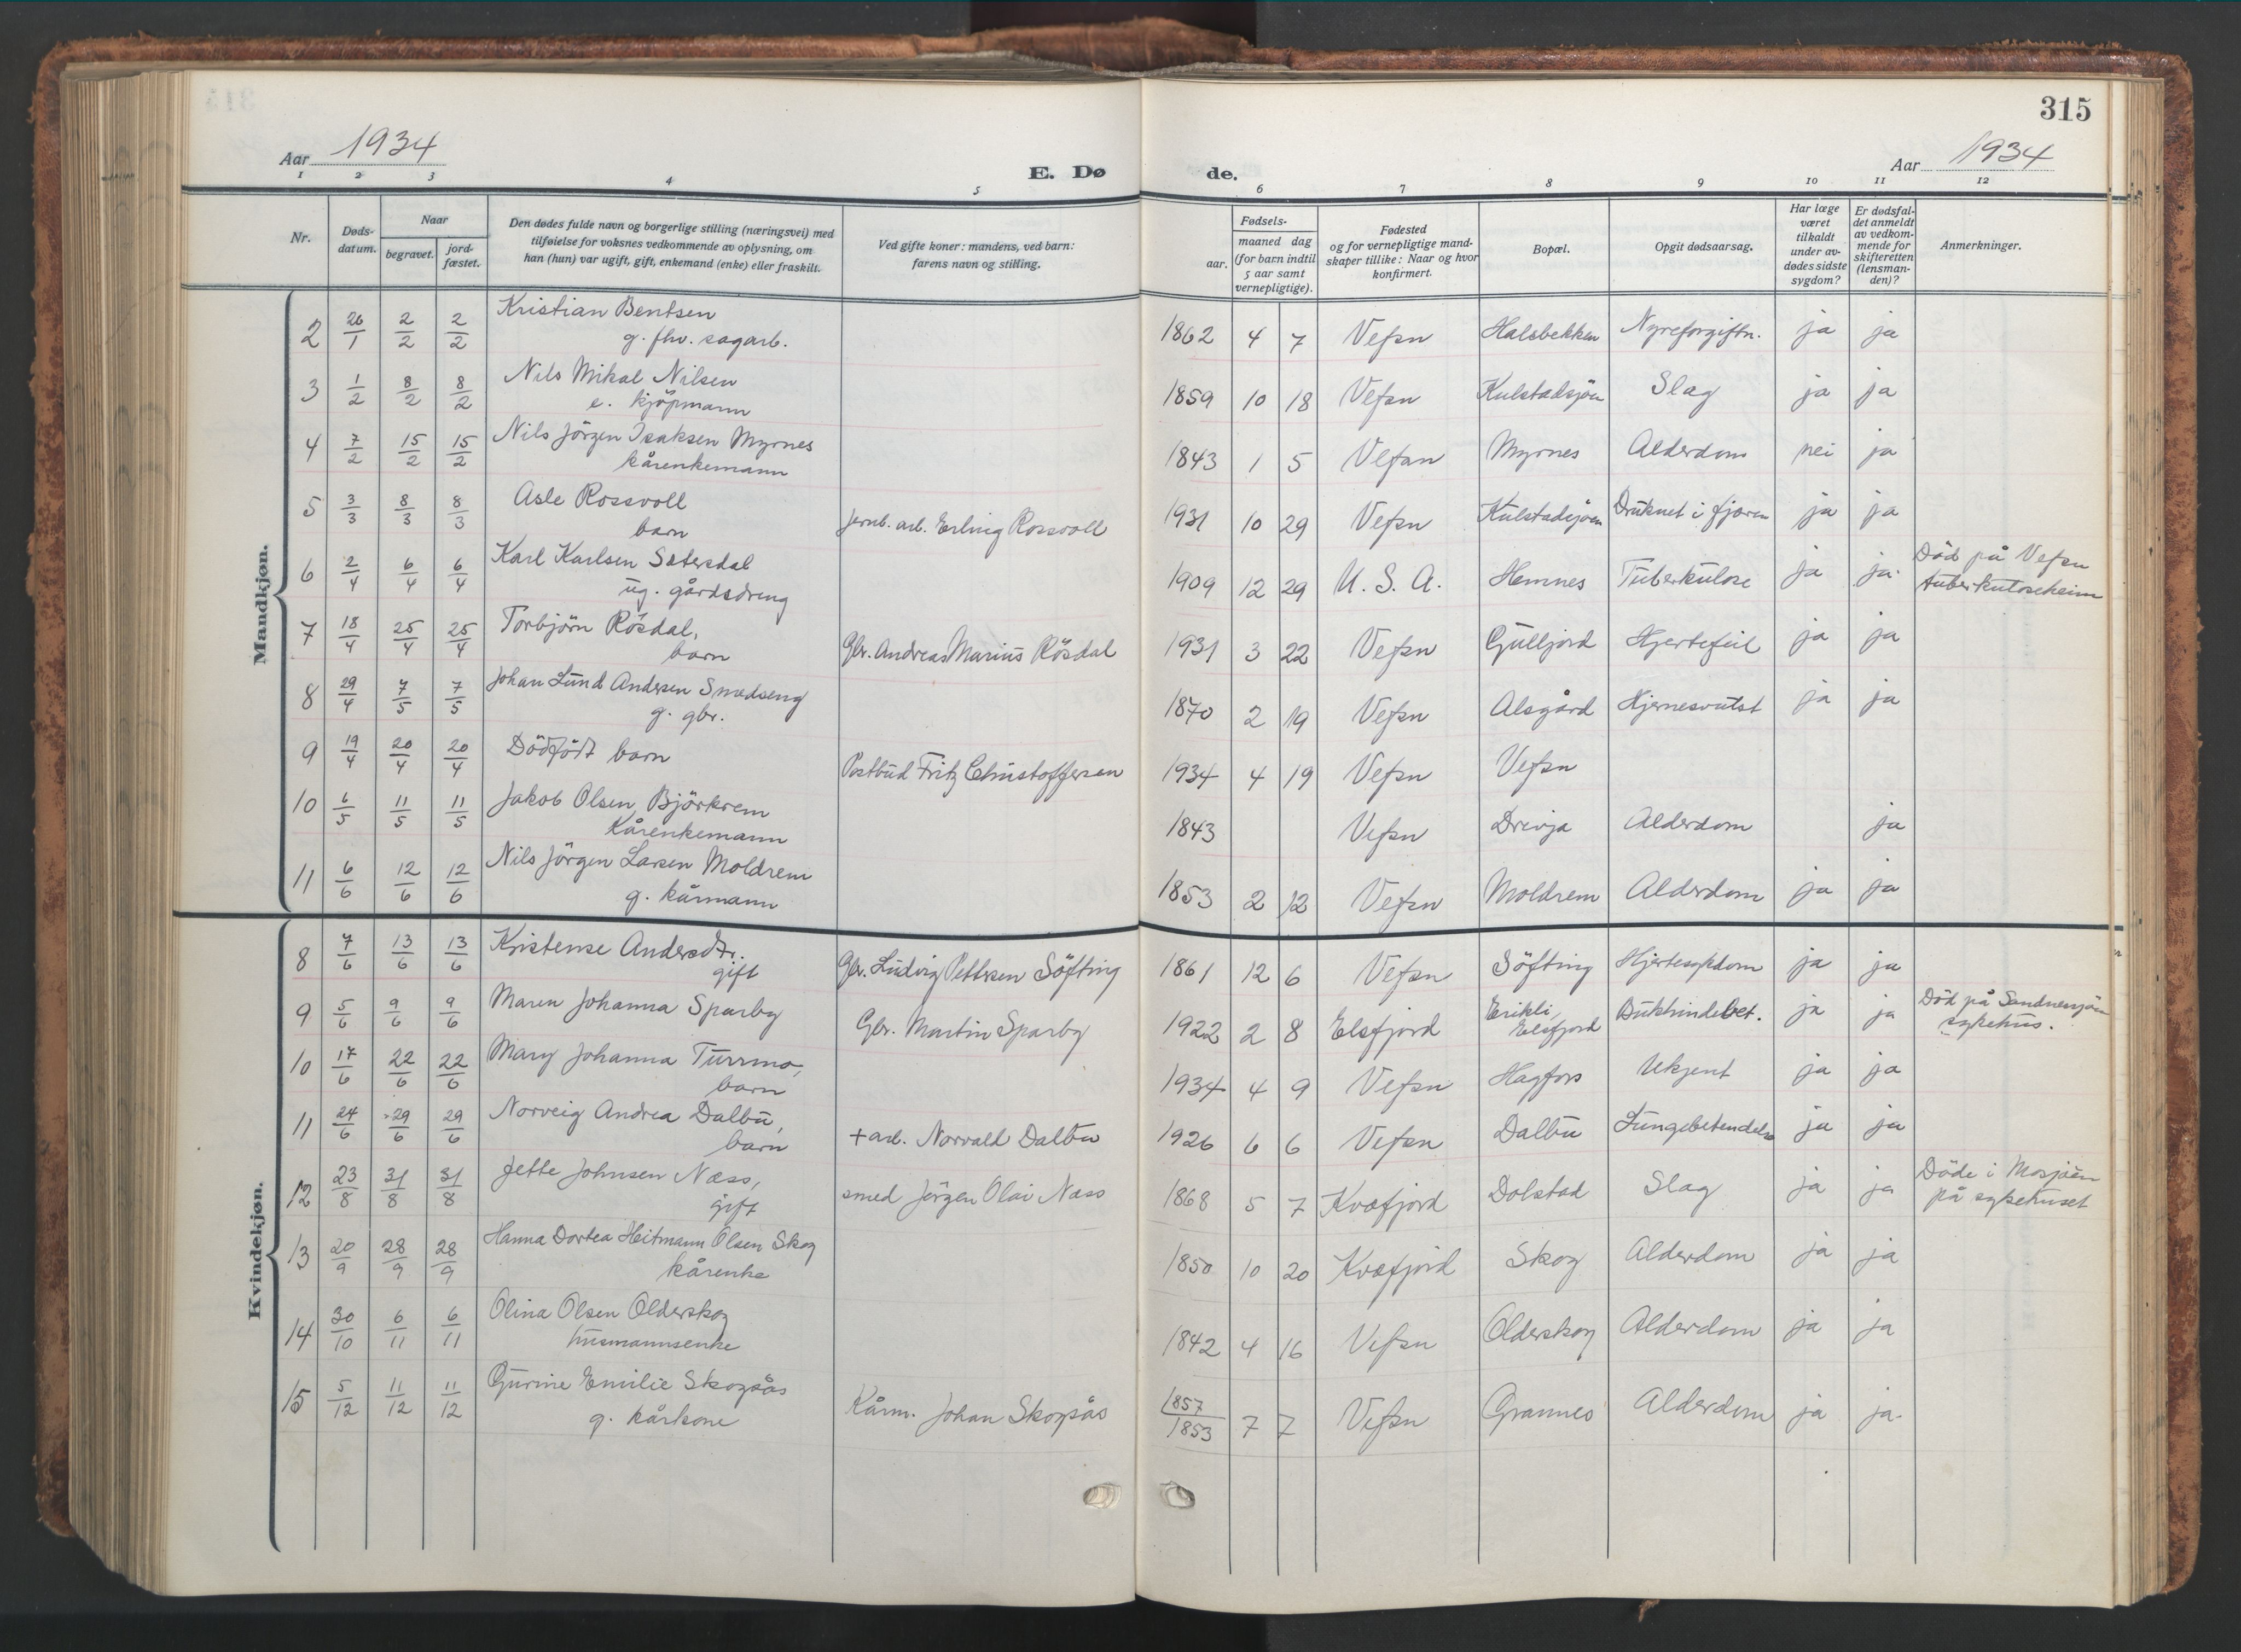 315
Aar 1934
E. Dø
de.
Aar 1934
1 2 3 4 5 6 7 8 9 10 11 12
Nr.
Døds-
datum.
Naar
begravet.
jord-
fæstet.
Den dødes fulde navn og borgerlige stilling (næringsvei) med
tilføielse for voksnes vedkommende av oplysning, om
han (hun) var ugift, gift, enkemand (enke) eller fraskilt.
Ved gifte koner: mandens, ved barn:
farens navn og stilling.
Fødsels-
aar.
maaned dag
(for barn indtil
5 aar samt
vernepligtige).
Fødested
og for vernepligtige mand-
skaper tillike: Naar og hvor
konfirmert.
Bopæl.
Opgit dødsaarsag.
Har læge
været
tilkaldt
under av-
dødes sidste
sygdom?
Er dødsfal-
det anmeldt
av vedkom-
mende for
skifteretten
(lensman-
den)?
Anmerkninger.
Mandkjøn.
2 26/1 2/2 2/2 Kristian Bentsen 1862 4 7 Vefsn Halsbekken Nyreforgiftn. ja ja
g. fhv. sagarb.
3 1/2 8/2 8/2 Nils Mikal Nilsen 1859 10 18 Vefsn Kulstadsjøen Slag ja ja
e. kjöpmann
4 7/2 15/2 15/2 Nils Jörgen Isaksen Myrnes 1843 1 5 Vefsn Myrnes Alderdom nei ja
kårenkemann
5 3/3 8/3 8/3 Asle Rossvoll Jernb. arb. Erling Rossvoll 1931 10 29 Vefsn Kulstadsjøen Druknet i fjæren ja ja
barn
6 2/4 6/4 6/4 Karl Karlsen Sætersdal 1909 12 29 U. S. A. Hemnes Tuberkulose ja ja. Död på Vefsn
ug. gårdsdreng tuberkuloseheim
7 18/4 25/4 25/4 Torbjörn Rösdal, Gbr. Andreas Marius Rösdal 1931 3 22 Vefsn Gulljord Hjertefeil ja ja
barn
8 29/4 7/5 7/5 Johan Lund Andersen Smedseng 1870 2 19 Vefsn Alsgård Hjernesvulst ja ja
g. gbr.
9 19/4 20/4 20/4 Dödfödt barn Postbud Fritz Christoffersen 1934 4 19 Vefsn Vefsn
10 6/5 11/5 11/5 Jakob Olsen Björkrem 1843 Vefsn Drevja Alderdom ja
Kårenkemann
11 6/6 12/6 12/6 Nils Jörgen Larsen Moldrem 1853 2 12 Vefsn Moldrem Alderdom ja ja
g. kårmann
Kvindekjøn.
8 7/6 13/6 13/6 Kristense Andersdtr. Gbr. Ludvig Pettersen Söfting 1861 12 6 Vefsn Söfting Hjertesykdom ja ja
gift
9 5/6 9/6 9/6 Maren Johanna Sparby Gbr. Martin Sparby 1922 2 8 Elsfjord Erikli, Elsfjord Bukhindebet. ja ja Död på Sandnessjöen
sykehus.
10 17/6 22/6 22/6 Mary Johanna Turrmo, 1934 4 9 Vefsn Hagfors Ukjent ja ja
barn
11 24/6 29/6 29/6 Norveig Andrea Dalbu, + arb. Norvald Dalbu 1926 6 6 Vefsn Dalbu Lungebetendelse ja ja
barn
12 23/8 31/8 31/8 Jette Johnsen Næss, smed Jörgen Olai Næss 1868 5 7 Kvæfjord Dolstad Slag ja ja Döde i Mosjöen
gift på sykehuset
13 20/9 28/9 28/9 Hanna Dortea Heitmann Olsen Skog 1850 10 20 Kvæfjord Skog Alderdom ja ja
kårenke
14 30/10 6/11 6/11 Olina Olsen Olderskog 1842 4 16 Vefsn Olderskog Alderdom ja ja
husmannsenke
15 5/12 11/12 11/12 Gurine Emilie Skogsås Kårm. Johan Skogsås 1857/1853 7 7 Vefsn Grannes Alderdom ja ja.
g. kårkone